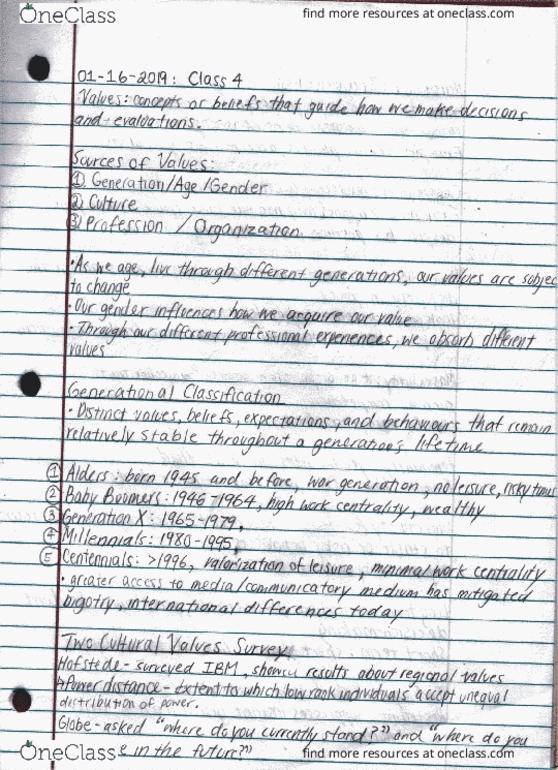 OneClass
find more resources at oneclass.com
01-16-2019: Class 4
Values: concepts or beliefs that guide how we make decisions
and evaluations.
Sources of Values:
① Generation/Age/Gender
② Culture
③ Profession / Organization
• As we age, live through different generations, our values are subjec
to change
• Our gender influences how we acquire our value
• Through our different professional experiences, we absorb different
values
Generational Classification
• Distinct values, beliefs, expectations, and behaviours that remain
relatively stable throughout a generation's lifetime
① Alders: born 1945 and before, war generation, no leisure, risky times
② Baby Boomers: 1946-1964, high work centrality, wealthy
③ Generation X: 1965-1979,
④ Millennials: 1980-1995,
⑤ Centennials: >1996, valorization of leisure, minimal work centrality
• greater access to media/communicatory medium has mitigated
bigotry, international differences today
Two Cultural Values Survey
Hofstede - surveyed IBM, showed results about regional values
↳ Power distance - extent to which low rank individuals accept unequal
distribution of power.
Globe - asked "where do you currently stand?" and "where do you
in the future?"
OneClass
find more resources at oneclass.com